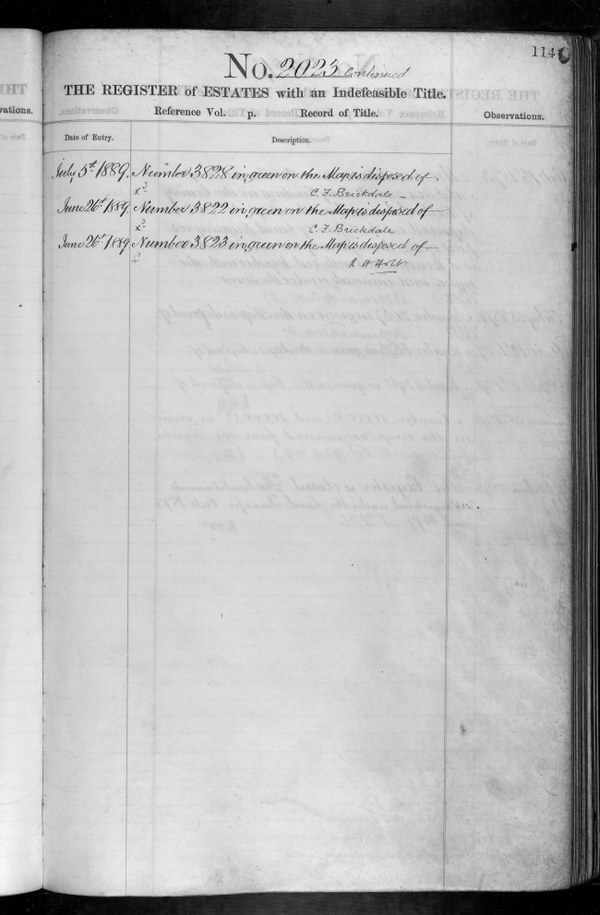 114
No. 2023 Continued
THE REGISTER of ESTATES with an Indefeasible Title.
Reference Vol. p. Record of Title.
Observations.
vations.
Date of Entry.
Description.
July 5th 1889. Number 3828 in green on the Map is disposed of
C. F. Brickdale
June 26th 1889. Number 3822 in green on the Map is disposed of
C. F. Brickdale
June 26th 1889 Number 3823 in green on the Map is disposed of